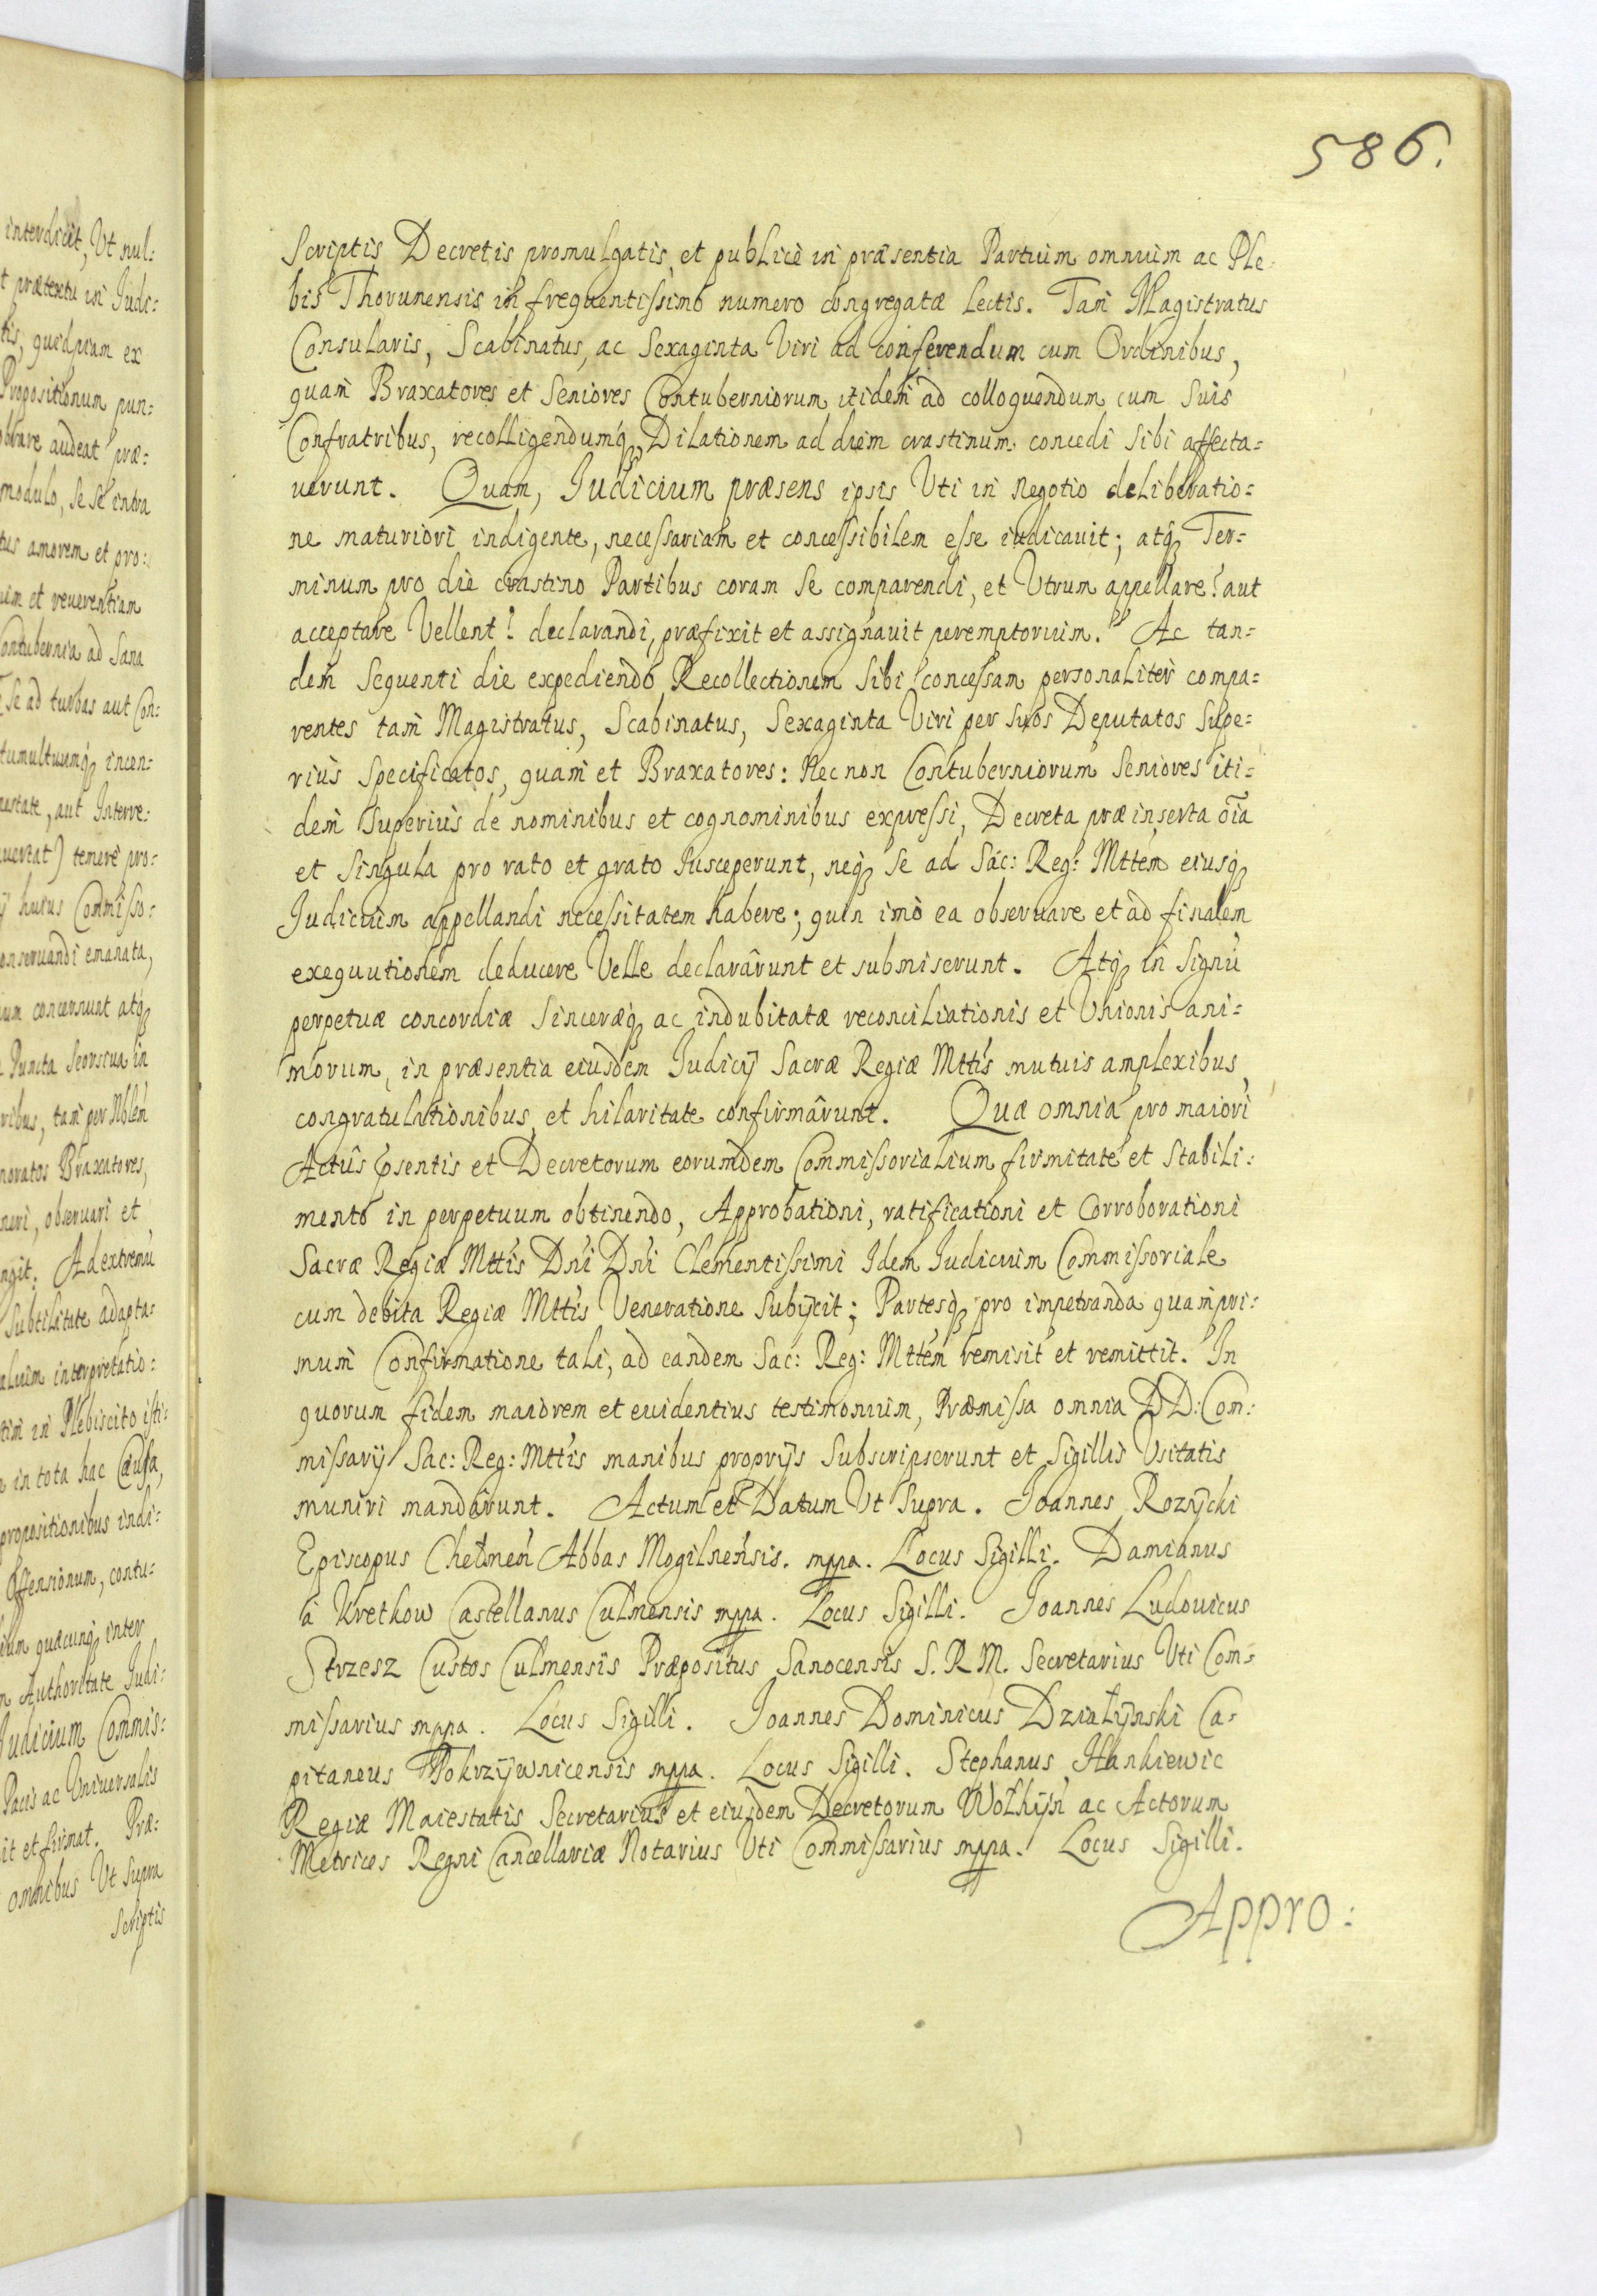 interdicit, Vt nul:
t prætextu in Judi:
tis, quidpiam ex
Propositionum pun:
audeat præ:
modulo, se se intra
tus amorem et pro:
uim et reuerentiam
Contubernia ad Sana
se ad turbas aut Con:
tumultuumq3 incen:
aut Interve:
temerè pro:
huius Commisso:
onseruandi emanata,
concernunt atq3
Puncta
ribus, tam per Nblem
noratos Braxatores,
neri, obseruari et
ngit. Ad extremũ
Subtilitate adapta:
interpretatio:
tim in Plebiscito isti:
in tota hac Causa,
propositionibus indi:
Offensionum, contu:
quacunq3 inter
Authoritate Judi:
Judicium Commis:
Pacis ac Vniuersalis
it et firmat. Præ:
omnibus Vt Supra
Scriptis
586.
Scriptis Decretis promulgatis, et publicè in præsentia Partium omnium ac Ple
bis Thorunensis in frequentissimo numero congregatæ lectis. Tam Magistratus
Consularis, Scabinatus, ac Sexaginta Viri ad conferendum cum Ordinibus,
quam Braxatores et Seniores Contuberniorum itidem ad colloquendum cum Suis
Confratribus, recolligendumq3, Dilationem ad diem crastinum concedi sibi affecta=
uerunt. Quam, Judicium præsens ipsis Vti in Negotio deliberatio=
ne maturiori indigente, necessariam et concessibilem esse iudicauit; atq3 Ter=
minum pro die crastino Partibus coram se comparendi, et Vtrum appellare? aut
acceptare Vellent? declarandi, præfixit et assignauit peremptorium. Ac tan=
dem Sequenti die expediendo Recollectionem Sibi concessam personaliter compa=
rentes tam Magistratus, Scabinatus, Sexaginta Viri per Suos Deputatos Supe=
riùs Specificatos, quam et Braxatores: Necnon Contuberniorum Seniores iti=
dem Superiùs de nominibus et cognominibus expressi, Decreta præinserta oĩa
et Singula pro rato et grato susceperunt, neq3 se ad Sac: Reg: Mttem eiusq3
Judicium appellandi necessitatem habere; quin imò ea obseruare et ad finalem
exequutionem deducere Velle declarârunt et submiserunt. Atq3 in Signũ
perpetuæ concordiæ Sinceræq3 ac indubitatæ reconciliationis et Vnionis ani=
morum, in præsentia eiusdem Judicij Sacræ Regiæ Mttis mutuis amplexibus,
congratulationibus, et hilaritate confirmârunt. Quæ omnia pro maiori
Actûs p̃sentis et Decretorum eorumdem Commissorialium firmitate et Stabili:
mento in perpetuum obtinendo, Approbationi, ratificationi et Corroborationi
Sacræ Regiæ Mttis Dñi Dñi Clementissimi Idem Judicium Commissoriale
cum debita Regiæ Mttis Veneratione Subijcit; Partesq3 pro impetranda quampri:
mum Confirmatione tali, ad eandem Sac: Reg: Mttem remisit et remittit. In
quorum fidem maiorem et euidentius testimonium, Præmissa omnia DD: Com:
missarij Sac: Reg: Mttis manibus proprijs Subscripserunt et Sigillis Vsitatis
muniri mandârunt. Actum et Datum Vt Supra. Joannes Roznÿcki
Episcopus Chełmeñ Abbas Mogilneñsis. mppa. Locus Sigilli. Damianus
à Kretkow Castellanus Culmensis mppa. Locus Sigilli. Joannes Ludouicus
Strzesz Custos Culmensis Præpositus Sanocensis S. R. M. Secretarius Vti Com=
missarius mppa. Locus Sigilli. Joannes Dominicus Działÿnski Ca=
pitaneus Pokrzÿwnicensis mppa. Locus Sigilli. Stephanus Hankiewic
Regiæ Maiestatis Secretarius et eiusdem Decretorum Wołhÿn ac Actorum
Metrices Regni Cancellariæ Notarius Vti Commissarius mppa. Locus Sigilli.
Appro: